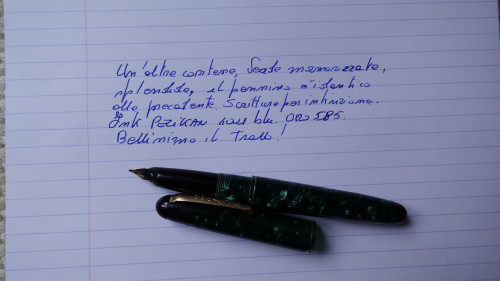 Un'altra Omas, Seate marmorizzata,
splendida, il pennino è identico
alla precedente. Scrittura per intinzione.
Ink PELIKAN 4001 blu. ORO 585.
Bellissimo il Tratto!